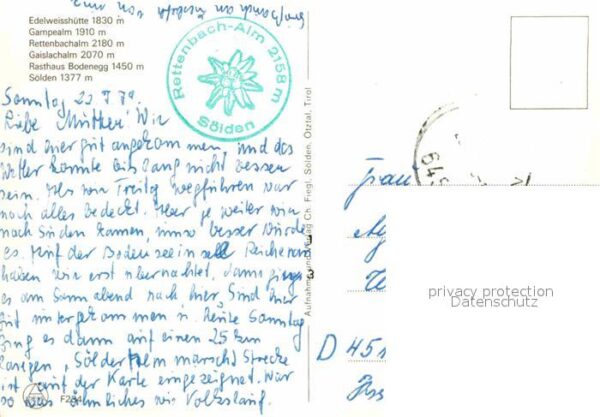 Edelweisshütte 1830 m
Gampealm 1910 m
Rettenbachalm 2180 m
Gaislachalm 2070 m
Rasthaus Bodenegg 1450 m
Sölden 1377 m
Rettenbach-Alm 2158 m
Sölden
Sonntag
Liebe Mutter! Wir
sind hier gut angekommen, und das
Wetter konnte bislang nicht besser
sein. Als wir Freitag wegfuhren war
noch alles bedeckt. Aber je weiter wir
nach Süden kamen, umso besser wurde
es. Auf der Bodenseeinsel Reichenau
haben wir erst übernachtet, dann ging
es am Sonnabend nach hier. Sind hier
gut untergekommen u. heute Sonntag
ging es dann auf einen 25 km
langen, Strecke
ist auf der Karte eingezeichnet. War
so was ähnliches wie Volkslauf.
F234
Aufnahme und Verlag Ch. Fiegl, Sölden, Ötztal, Tirol
645
Frau
D 451
privacy protection
Datenschutz